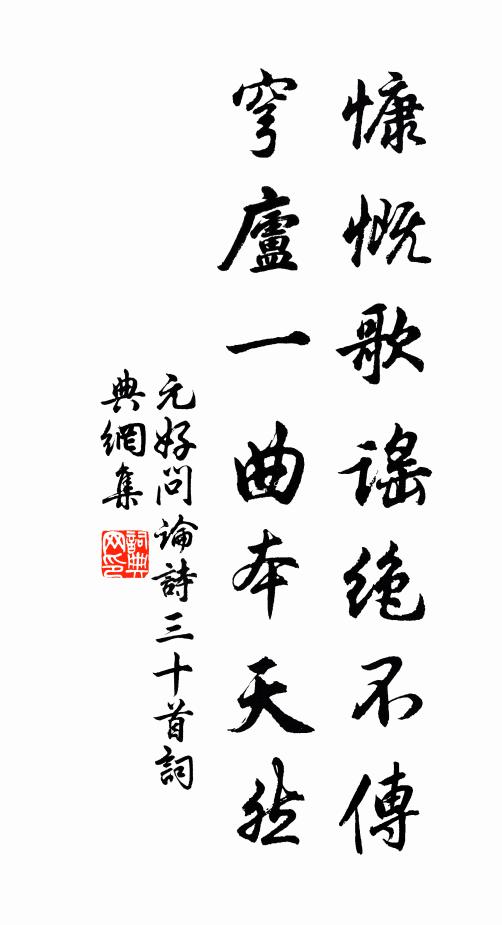 慷慨歌謠絶不傳
穹廬一曲本天然
元好问論詩三十首詞
典網集
詞典网印